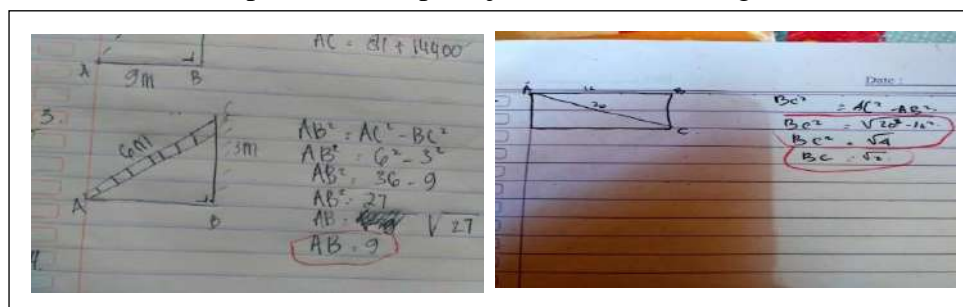 AC = 81 + 14400
A 9m B
3.
C
6m
3m
A
B
AB² = AC² - BC²
AB² = 6² - 3²
AB² = 36 - 9
AB² = 27
AB = √27
AB = 9
4.
Date :
A B
20
C
BC² = AC² - AB²
BC² = √20² - 16²
BC² = √4
BC = √2